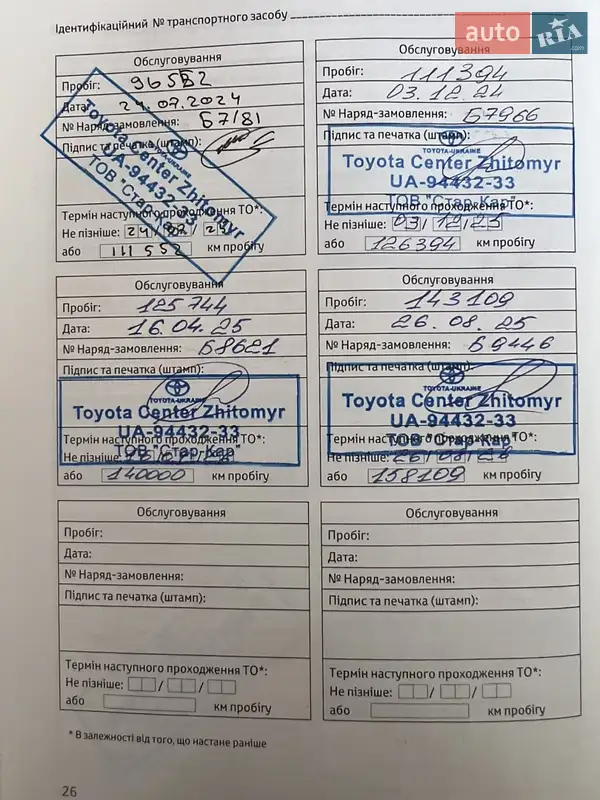 auto RIA .com
Ідентифікаційний № транспортного засобу
Обслуговування
Пробіг: 96552
Дата: 24.07.2024
№ Наряд-замовлення: Б7181
Підпис та печатка (штамп):
TOYOTA-UKRAINE
Toyota Center Zhitomyr
UA-94432-33
ТОВ "Стар-Кар"
Термін наступного проходження ТО*:
Не пізніше: 24/
або 111552 км пробігу
Обслуговування
Пробіг: 111394
Дата: 03.12.24
№ Наряд-замовлення: Б7966
Підпис та печатка (штамп):
TOYOTA-UKRAINE
Toyota Center Zhitomyr
UA-94432-33
ТОВ "Стар-Кар"
Термін наступного проходження ТО*:
Не пізніше: 03/12/25
або 126394 км пробігу
Обслуговування
Пробіг: 125744
Дата: 16.04.25
№ Наряд-замовлення: Б8621
Підпис та печатка (штамп):
TOYOTA-UKRAINE
Toyota Center Zhitomyr
UA-94432-33
Термін наступного проходження ТО*:
ТОВ "Стар-Кар"
Не пізніше:
або 140000 км пробігу
Обслуговування
Пробіг: 143109
Дата: 26.08.25
№ Наряд-замовлення: Б9446
Підпис та печатка (штамп):
TOYOTA-UKRAINE
Toyota Center Zhitomyr
UA-94432-33
Термін наступного проходження ТО*:
ТОВ "Стар-Кар"
Не пізніше: 26/08/
або 158109 км пробігу
Обслуговування
Пробіг:
Дата:
№ Наряд-замовлення:
Підпис та печатка (штамп):
Термін наступного проходження ТО*:
Не пізніше: / /
або км пробігу
Обслуговування
Пробіг:
Дата:
№ Наряд-замовлення:
Підпис та печатка (штамп):
Термін наступного проходження ТО*:
Не пізніше: / /
або км пробігу
* В залежності від того, що настане раніше
26